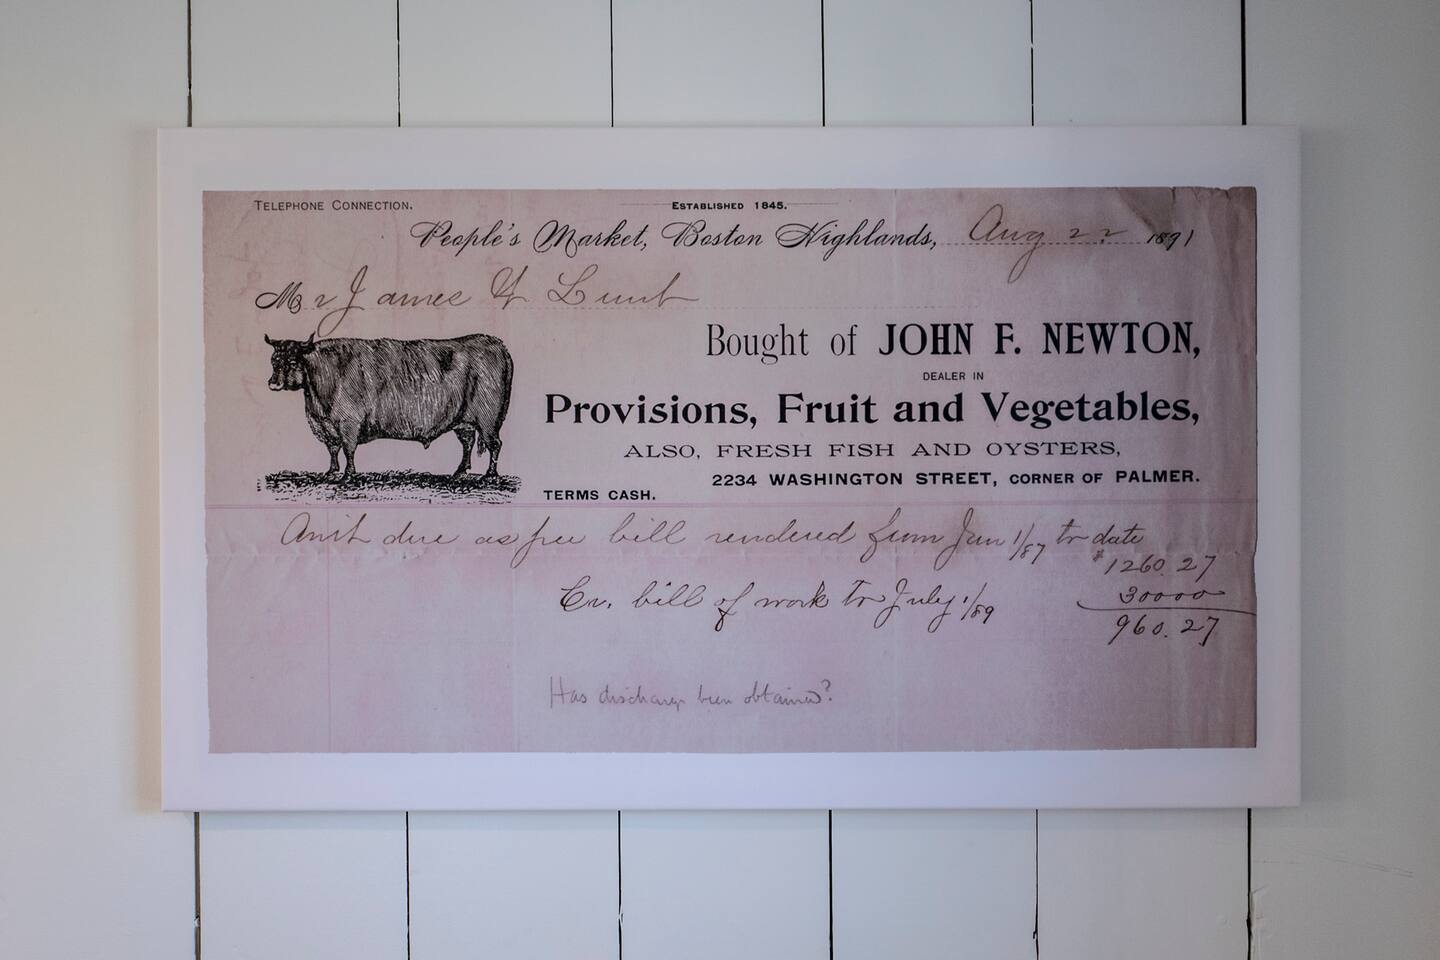 TELEPHONE CONNECTION.
ESTABLISHED 1845.
People's Market, Boston Highlands, Aug 22 1891
Mr James Y Lunt
Bought of JOHN F. NEWTON,
DEALER IN
Provisions, Fruit and Vegetables,
ALSO, FRESH FISH AND OYSTERS,
2234 WASHINGTON STREET, CORNER OF PALMER.
TERMS CASH.
Amt due as per bill rendered from Jan 1/87 to date
$1260.27
Cr. bill of work to July 1/89
30000
960.27
Has discharge been obtained?